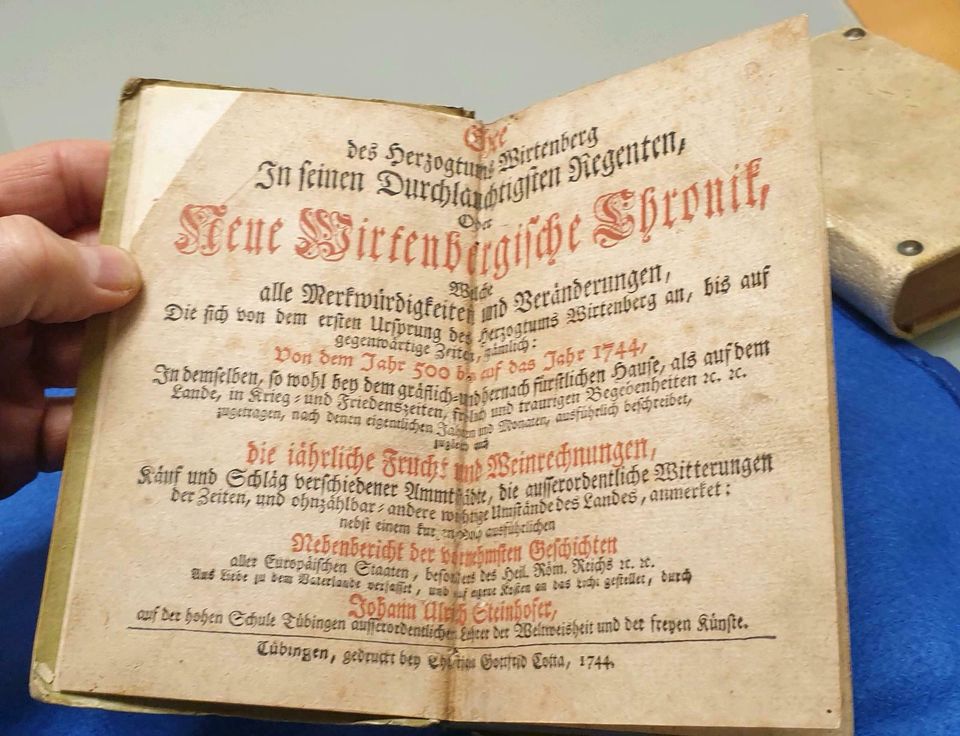 Ere
des Herzogtums Wirtenberg
In seinen Durchlauchtigsten Regenten,
Oder
Neue Wirtenbergische Chronik,
Welche
alle Merkwürdigkeiten und Veränderungen,
Die sich von dem ersten Ursprung des Herzogtums Wirtenberg an, bis auf
gegenwärtige Zeiten, nämlich:
Von dem Jahr 500 bis auf das Jahr 1744,
In demselben, so wohl bey dem gräflich- und hernach fürstlichen Hause, als auf dem
Lande, in Krieg- und Friedenszeiten, frölich und traurigen Begebenheiten ꝛc. ꝛc.
zugetragen, nach denen eigentlichen Jahren und Monaten, ausführlich beschreibet,
zugleich auch
die iährliche Frucht und Weinrechnungen,
Käuf und Schläg verschiedener Ammtstädte, die ausserordentliche Witterungen
der Zeiten, und ohnzählbar-andere wichtige Umstände des Landes, anmerket:
nebst einem kurzen doch ausführlichen
Nebenbericht der vornehmsten Geschichten
aller Europäischen Staaten, besonders des Heil. Röm. Reichs ꝛc. ꝛc.
Aus Liebe zu dem Vaterlande verfasset, und auf eigene Kosten an das Licht gestellet, durch
Johann Ulrich Steinhofer,
auf der hohen Schule Tübingen ausserordentlichen Lehrer der Weltweisheit und der freyen Künste.
Tübingen, gedruckt bey Christian Gottfrid Cotta, 1744.